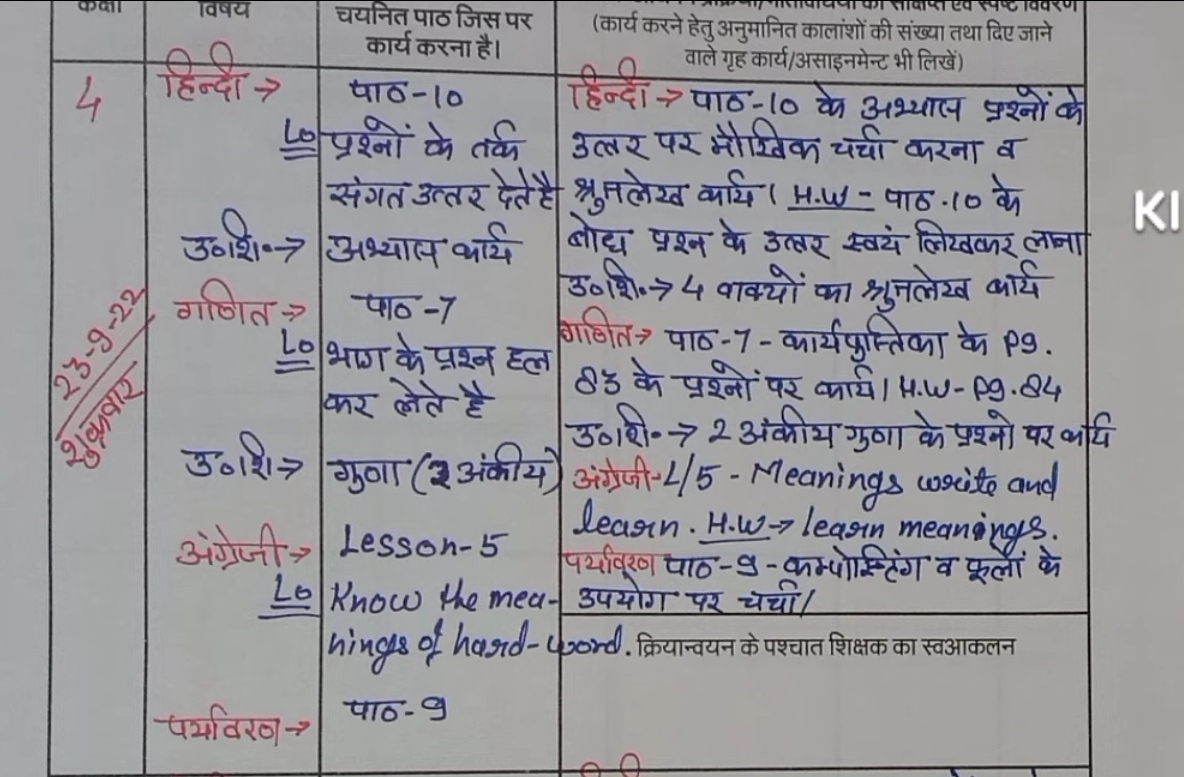 कक्षा
विषय
चयनित पाठ जिस पर
कार्य करना है।
का संक्षिप्त एवं स्पष्ट विवरण
(कार्य करने हेतु अनुमानित कालांशों की संख्या तथा दिए जाने
वाले गृह कार्य/असाइनमेन्ट भी लिखें)
4
23-9-22
शुक्रवार
हिन्दी →
पाठ-10
Lo प्रश्नों के तर्क
संगत उत्तर देते है
उ०शि०→ अभ्यास कार्य
गणित →
पाठ-7
Lo भाग के प्रश्न हल
कर लेते है
उ०शि→ गुणा (2 अंकीय)
अंग्रेजी→ Lesson-5
Lo Know the mea-
nings of hard-word.
पर्यावरण→ पाठ-9
हिन्दी → पाठ-10 के अभ्यास प्रश्नों के
उत्तर पर मौखिक चर्चा करना व
श्रुतलेख कार्य। H.W- पाठ.10 के
बोध प्रश्न के उत्तर स्वयं लिखकर लाना
उ०शि.→ 4 वाक्यों का श्रुतलेख कार्य
गणित→ पाठ-7-कार्यपुस्तिका के pg.
83 के प्रश्नों पर कार्य। H.W-pg.84
उ०शि०→ 2 अंकीय गुणा के प्रश्नो पर कार्य
अंग्रेजी-L/5 - Meanings write and
learn. H.W→ learn meanings.
पर्यावरण पाठ-9-कम्पोस्टिंग व फूलों के
उपयोग पर चर्चा।
क्रियान्वयन के पश्चात शिक्षक का स्वआकलन
KI